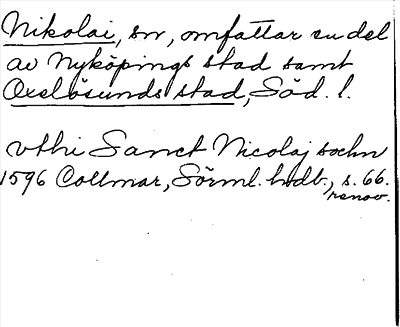 Nikolai, sn, omfattar en del
av Nyköpings stad samt
Oxelösunds stad, Söd. l.
vthi Sanct Nicolaj sochn
1596 Collmar, Sörml. hndb., s. 66.
renov.